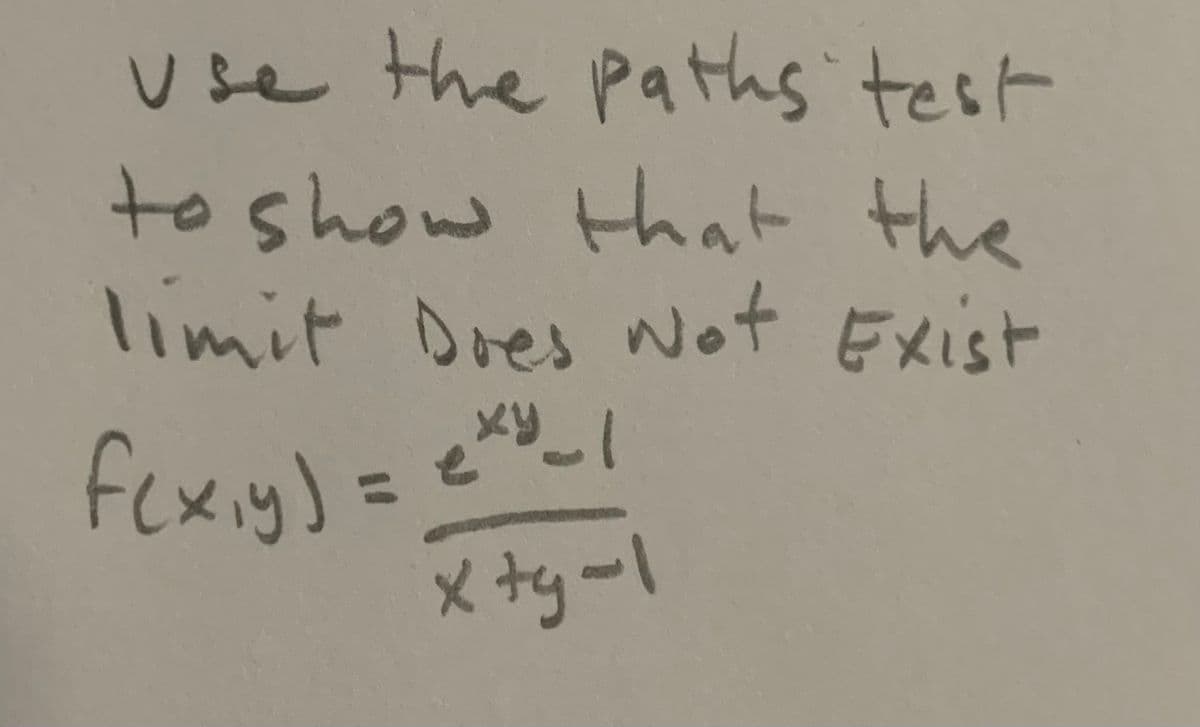 Use the paths test
to show that the
limit Does Not Exist
f(x,y) = e^xy - 1
x + y - 1